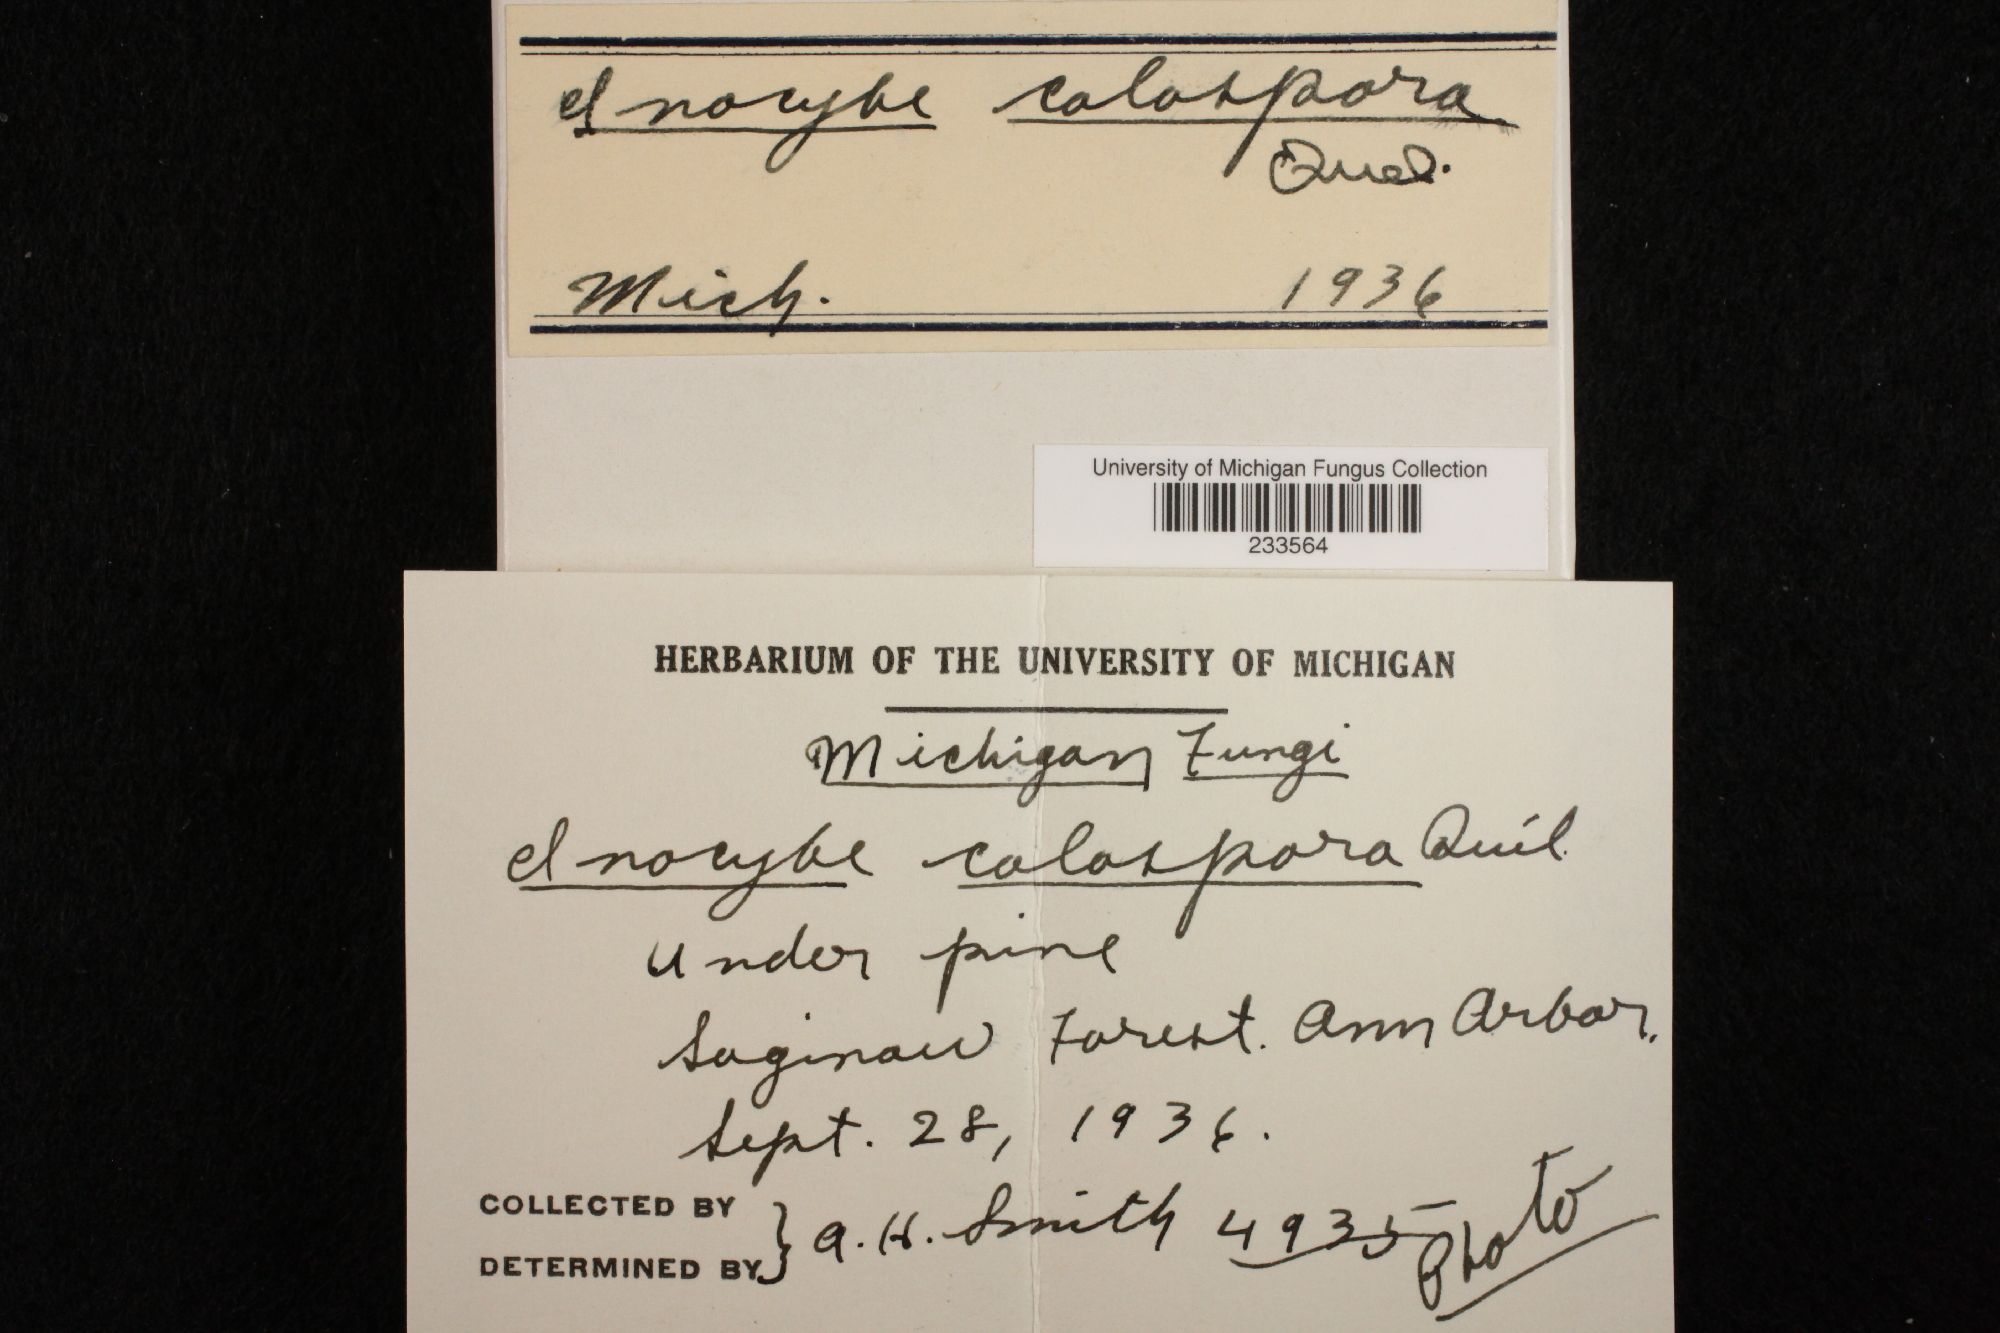 Inocybe calospora
Quel.
Mich. 1936
University of Michigan Fungus Collection
233564
HERBARIUM OF THE UNIVERSITY OF MICHIGAN
Michigan Fungi
Inocybe calospora Quél.
Under pine
Saginaw Forest. Ann Arbor.
Sept. 28, 1936.
COLLECTED BY
DETERMINED BY } A. H. Smith 4935 Photo